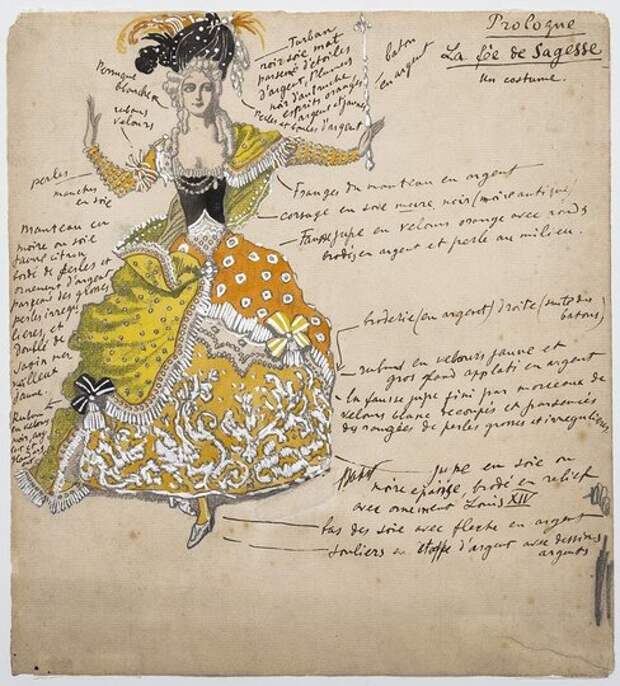 Prologue
La fée de Sagesse
Un costume.
Turban
noir soie mat
parsemé d'étoiles
d'argent, Plumes
noir d'autruche
esprits oranges
argent et jaune
Perles et boules d'argent
baton
en argent
Perruque
blanche
rubans
velours
perles
manches
en soie
Franges du manteau en argent
corsage en soie noir (moire antique)
Fausse jupe en velours orange avec ronds
brodés en argent et perle au milieu.
Manteau en
moire ou soie
jaune citron
bordé de perles et
ornement d'argent
parsemé des grosses
perles irregu
lieres, et
doublé de
satin mer
veilleux
jaune.
Ruban
en velours
noir, arg
broderie (en argent) droite
ruband en velours jaune et
gros gland applati en argent
la fausse jupe fini par morceaux de
velours blanc recoupés et parsemés
du rangées de perles grosses et irregulieres
jupe en soie ou
moire epaisse, brodé en relief
avec ornement Louis XIV
bas des soie avec fleche en argent
souliers en etoffe d'argent avec dessins
argents